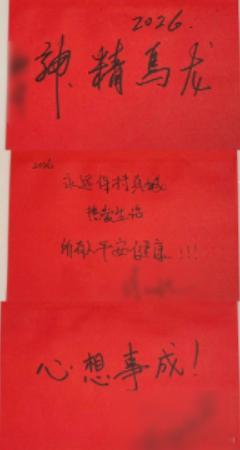 2026.
神.精馬龙
2026
永远保持真诚
热爱生活
所有人平安健康!!!
心想事成!